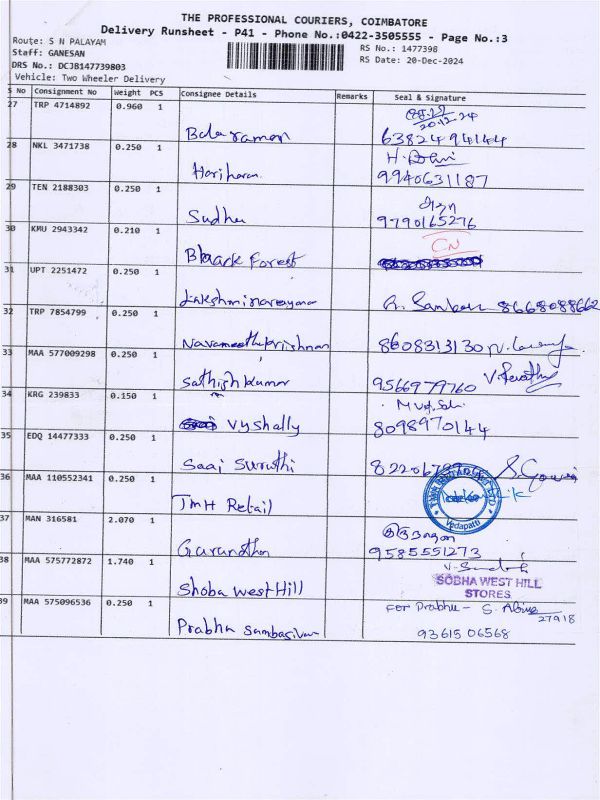 THE PROFESSIONAL COURIERS, COIMBATORE
Delivery Runsheet - P41 - Phone No.:0422-3505555 - Page No.:3
Route: S N PALAYAM
Staff: GANESAN
DRS No.: DCJB147739803
Vehicle: Two Wheeler Delivery
RS No.: 1477398
RS Date: 20-Dec-2024
S No Consignment No Weight PCS Consignee Details Remarks Seal & Signature
27 TRP 4714892 0.960 1 Balaraman 20.12.24
63824 94144
28 NKL 3471738 0.250 1 Hariharan H.
9940631187
29 TEN 2188303 0.250 1 Sudha
9790165276
30 KMU 2943342 0.210 1 Blaack Forest CN
31 UPT 2251472 0.250 1 Lakshminarayana 8668088662
32 TRP 7854799 0.250 1 Navaneethakrishnan 8608313130
33 MAA 577009298 0.250 1 Sathish Kumar 9566979760
34 KRG 239833 0.150 1 Vyshally
8098970144
35 EDQ 14477333 0.250 1 Saai Suruthi 82206
36 MAA 110552341 0.250 1 TMH Retail Vedapatti
37 MAN 316581 2.070 1
9585551273
38 MAA 575772872 1.740 1 Shoba West Hill
SOBHA WEST HILL
STORES
39 MAA 575096536 0.250 1 Prabha Sambasivan For Prabhu - S.
27918
93615 06568